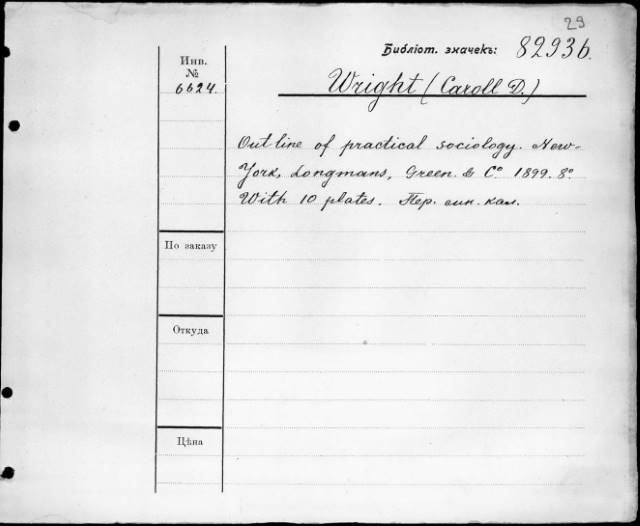 29
Библіот. значекъ: 82936.
Инв.
№
6624.
Wright (Caroll D.)
Outline of practical sociology. New-
York, Longmans, Green. & Cº 1899. 8º
With 10 plates. Пер. син. кал.
По заказу
Откуда
Цѣна